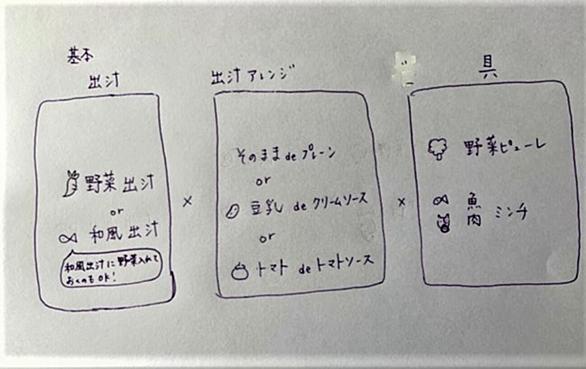 基本
出汁
野菜出汁
or
和風出汁
和風出汁に野菜入れて
おくのもOK!
×
出汁アレンジ
そのまま de プレーン
or
豆乳 de クリームソース
or
トマト de トマトソース
×
具
野菜ピューレ
魚
肉
ミンチ